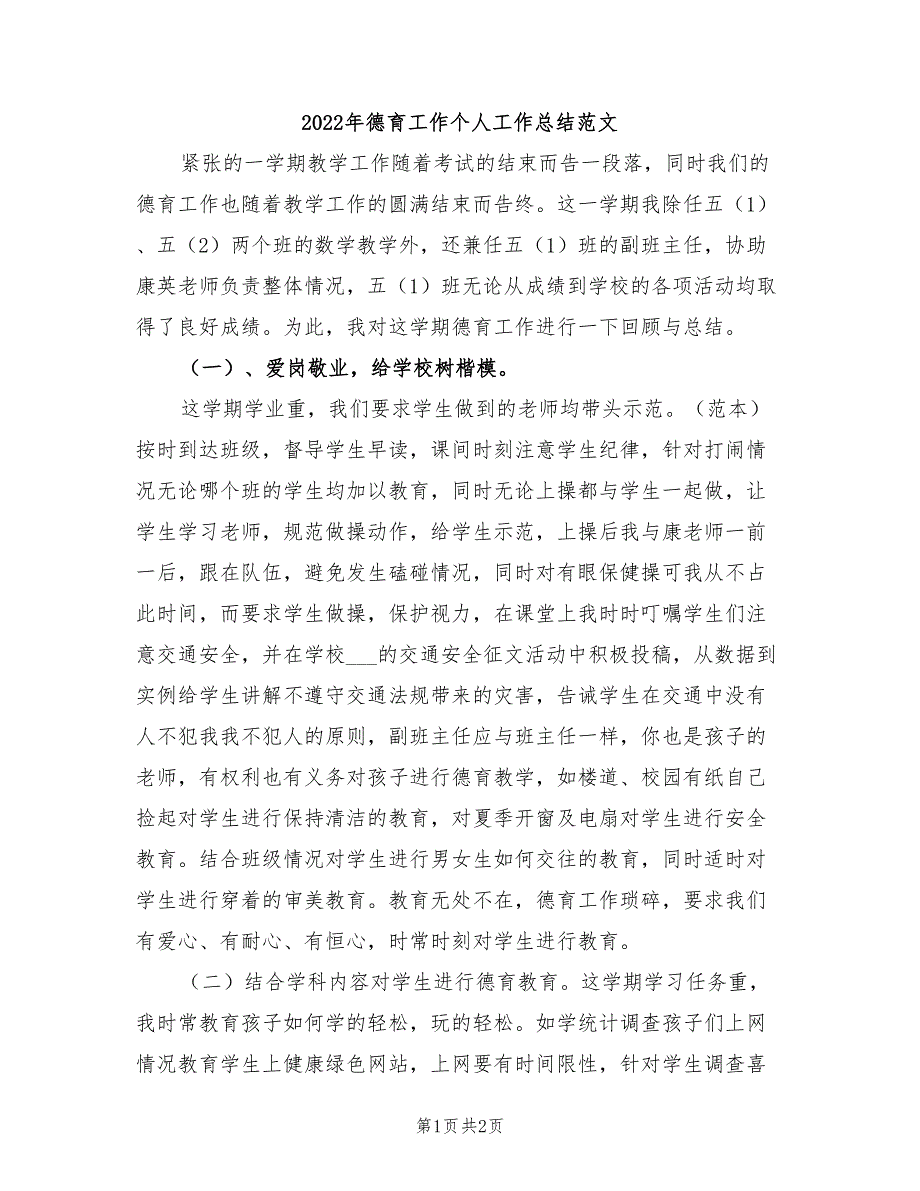 2022年德育工作个人工作总结范文
紧张的一学期教学工作随着考试的结束而告一段落，同时我们的
德育工作也随着教学工作的圆满结束而告终。这一学期我除任五（1）
、五（2）两个班的数学教学外，还兼任五（1）班的副班主任，协助
康英老师负责整体情况，五（1）班无论从成绩到学校的各项活动均取
得了良好成绩。为此，我对这学期德育工作进行一下回顾与总结。
（一）、爱岗敬业，给学校树楷模。
这学期学业重，我们要求学生做到的老师均带头示范。（范本）
按时到达班级，督导学生早读，课间时刻注意学生纪律，针对打闹情
况无论哪个班的学生均加以教育，同时无论上操都与学生一起做，让
学生学习老师，规范做操动作，给学生示范，上操后我与康老师一前
一后，跟在队伍，避免发生磕碰情况，同时对有眼保健操可我从不占
此时间，而要求学生做操，保护视力，在课堂上我时时叮嘱学生们注
意交通安全，并在学校___的交通安全征文活动中积极投稿，从数据到
实例给学生讲解不遵守交通法规带来的灾害，告诫学生在交通中没有
人不犯我我不犯人的原则，副班主任应与班主任一样，你也是孩子的
老师，有权利也有义务对孩子进行德育教学，如楼道、校园有纸自己
捡起对学生进行保持清洁的教育，对夏季开窗及电扇对学生进行安全
教育。结合班级情况对学生进行男女生如何交往的教育，同时适时对
学生进行穿着的审美教育。教育无处不在，德育工作琐碎，要求我们
有爱心、有耐心、有恒心，时常时刻对学生进行教育。
（二）结合学科内容对学生进行德育教育。这学期学习任务重，
我时常教育孩子如何学的轻松，玩的轻松。如学统计调查孩子们上网
情况教育学生上健康绿色网站，上网要有时间限性，针对学生调查喜
第1页 共2页